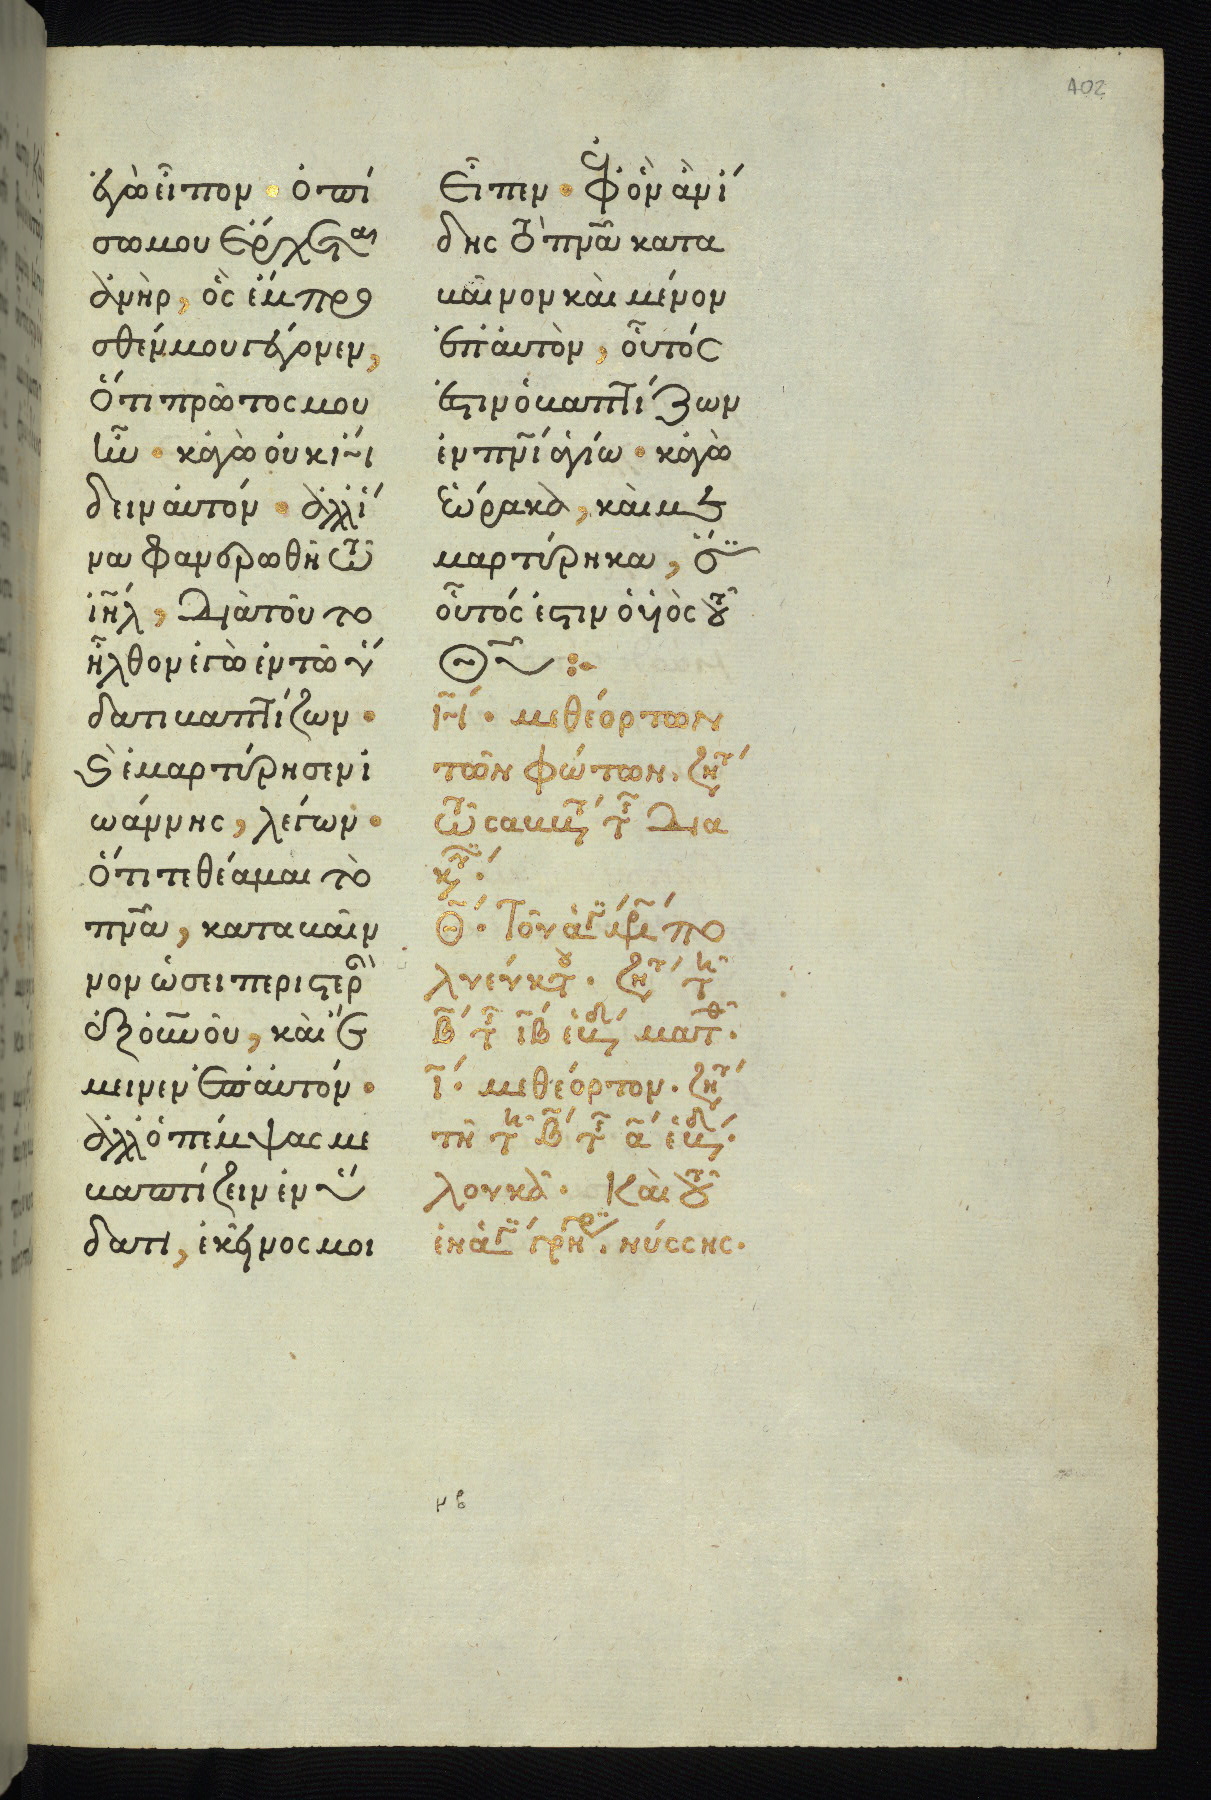 402
ἐγὼ εἶπον · ὀπί
σω μου ἔρχεται
ἀνὴρ, ὃς ἔμπρο
σθέν μου γέγονεν,
ὅτι πρῶτος μου
ἦν · κἀγὼ οὐκ ἤ
δειν αὐτόν · ἀλλ' ἵ
να φανερωθῆ τῶ
ιη̅λ, διὰ τοῦτο
ἦλθον ἐγὼ ἐν τῶ ὕ
δατι βαπτίζων ·
καὶ ἐμαρτύρησεν ἰ
ωάννης, λέγων ·
ὅτι τεθέαμαι τὸ
πν̅α, καταβαῖν
νον ὡσεὶ περιστερὰν
ἐξ οὐνοῦ, καὶ ἔ
μεινεν ἐπ' αὐτόν ·
ἀλλ' ὁ πέμψας με
βαπτίζειν ἐν ὕ
δατι, ἐκεῖνος μοι
εἶπεν · ἐφ' ὃν ἂν ἴ
δης τὸ πν̅α κατα
βαῖνον καὶ μένον
ἐπ' αὐτὸν, οὗτός
ἐστιν ὁ βαπτίζων
ἐν πν̅ι ἁγίω · κἀγὼ
ἑώρακα, καὶ με
μαρτύρηκα, ὅτι
οὗτός ἐστιν ὁ υἱὸς τοῦ
θυ̅ :·
η̅ · μεθέορτων
τῶν φώτων. ζητ
τῶ σαββ τ δια
κ ·
θ̅ · Τὸν ἁγ μρ πο
λυεύκτου · ζητ τη
β τ ιβ ἑβδ ματθ ·
ι̅ · μεθέορτον · ζητ
τῆ κ β τ α ἑβδ ·
λουκᾶ · Καὶ τοῦ
ἐν ἁγ γρηγ νύσσης ·
μβ